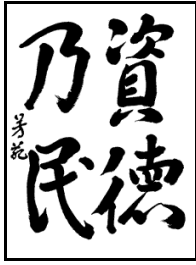 資徳
乃民
芳苑